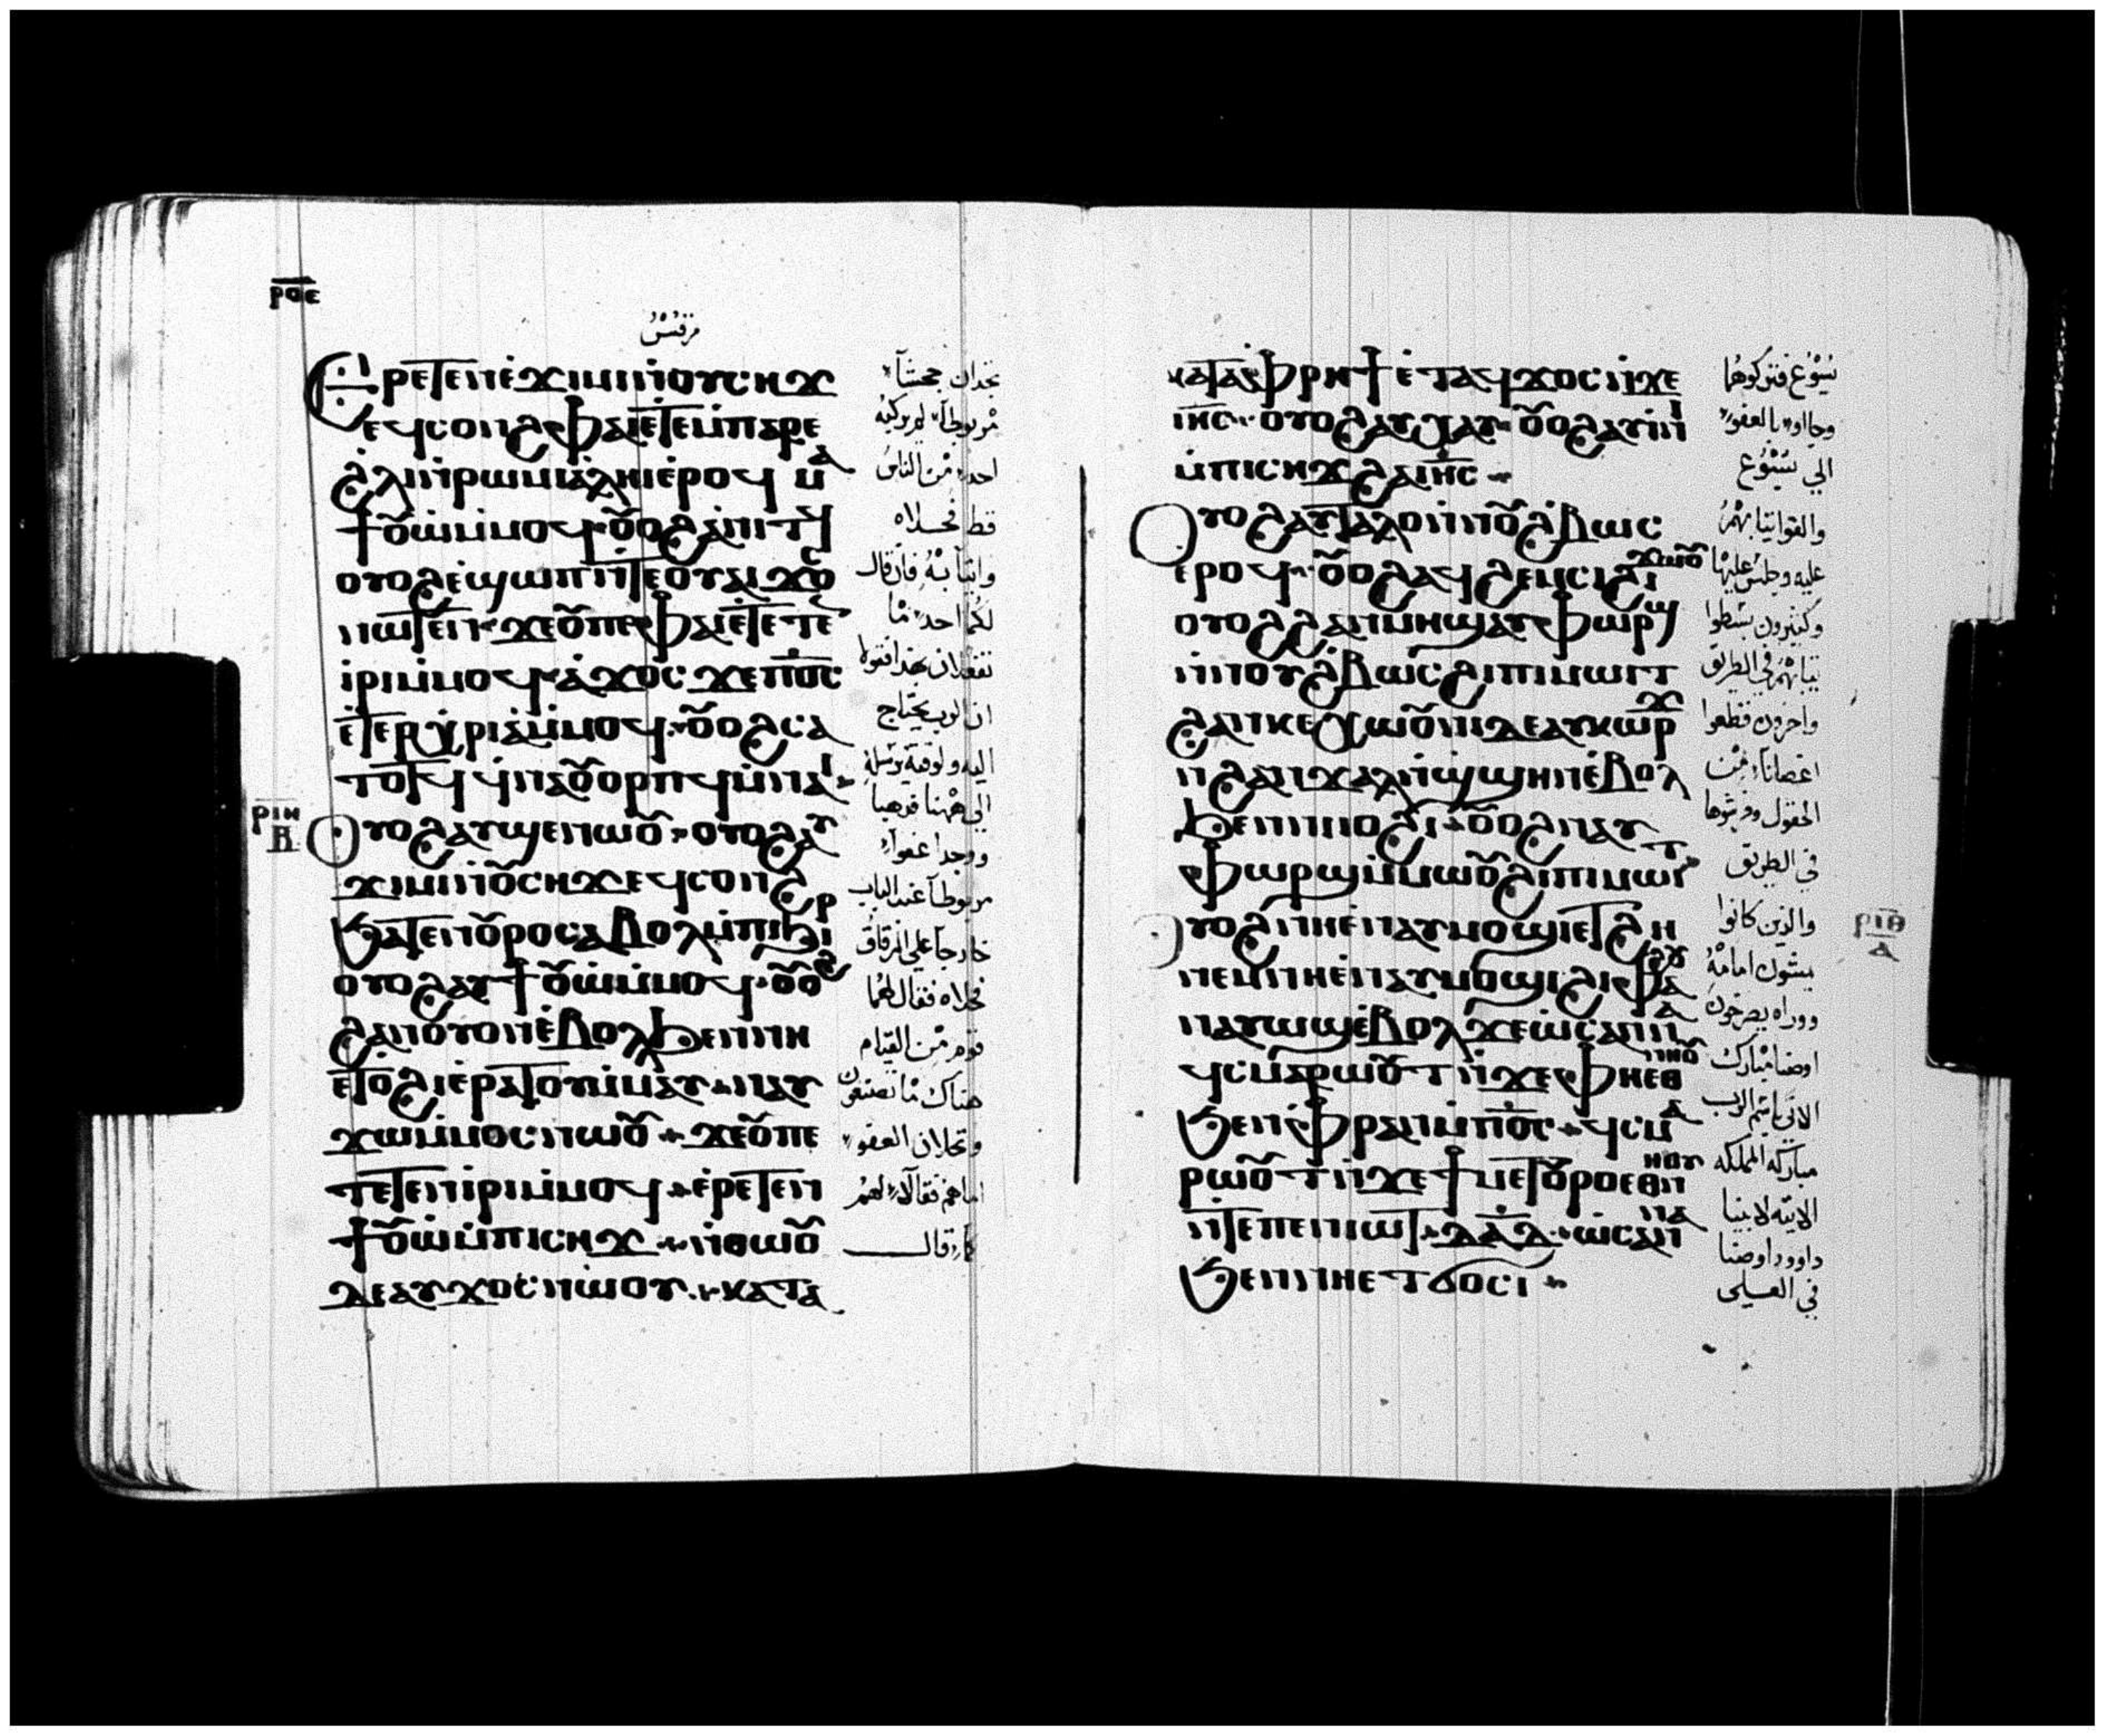 ⲣⲟⲉ
مرقس
Ⲉⲣⲉⲧⲉⲛⲉϫⲓⲙⲓⲛⲟⲩⲥⲏϫ
ⲉϥⲥⲟⲛϩ ⲫⲁⲓⲉⲧⲉⲙⲡⲁⲣⲉ
ϩⲗⲓⲛⲣⲱⲙⲓⲁⲗⲏⲓⲉⲣⲟϥ ⲙⲁ
ϯⲟⲩⲱⲙⲙⲟϥ ⲟⲩⲟϩⲁⲛⲓⲧϥ
ⲟⲩⲟϩⲉϣⲱⲡⲛⲧⲉⲟⲩⲁⲓϫⲟⲥ
ⲛⲱⲧⲉⲛ ϫⲉⲟⲩⲡⲉ ⲫⲁⲓⲉⲧⲉⲧⲉⲛ
ⲓⲣⲓⲙⲙⲟϥ ⲁϫⲟⲥ ϫⲉⲡϭⲟⲥ
ⲉⲧⲉⲣⲭⲣⲓⲁⲙⲙⲟϥ ⲟⲩⲟϩⲥⲁ
ⲧⲟⲧϥ ϥⲛⲁⲟⲩⲟⲣⲡϥⲙⲛⲁⲓ
Ⲟⲩⲟϩⲁⲩϣⲉⲛⲱⲟⲩ ⲟⲩⲟϩⲁⲩ
ϫⲓⲙⲓⲛⲟⲩⲥⲏϫⲉϥⲥⲟⲛϩ
ϧⲁⲧⲉⲛⲟⲩⲣⲟⲥⲁⲃⲟⲗⲙⲡⲓϧⲓⲣ
ⲟⲩⲟϩⲁⲩϯⲟⲩⲱⲙⲙⲟϥ ⲟⲩⲟϩ
ϩⲁⲛⲟⲩⲟⲛⲉⲃⲟⲗϧⲉⲛⲛⲏ
ⲉⲧⲟϩⲓⲉⲣⲁⲧⲟⲩⲙⲙⲁⲩ ⲛⲁⲩ
ϫⲱⲙⲙⲟⲥⲛⲱⲟⲩ ϫⲉⲟⲩⲡⲉ
ⲧⲉⲧⲉⲛⲓⲣⲓⲙⲙⲟϥ ⲉⲣⲉⲧⲉⲛ
ϯⲟⲩⲱⲙⲡⲓⲥⲏϫ ⲛⲑⲱⲟⲩ
ⲇⲉⲁⲩϫⲟⲥⲛⲱⲟⲩ ⲕⲁⲧⲁ
ⲣⲓⲏ
ⲃ
تجدان جحشا
مربوطا لم يركبه
احد من الناس
قط فحلاه
واتيا به فان قال
لكما احد ما
تفعلان بهذا فقولا
ان الرب يحتاج
اليه ولوقته يرسله
الى ههنا فذهبا
ووجدا عفوا
مربوطا عند الباب
خارجا على الزقاق
فحلاه فقال لهما
قوم من القيام
هناك ما تصنعون
وتحلان العفو
اما هم فقالا لهم
كما قال
ⲕⲁⲧⲁⲫⲣⲏϯⲉⲧⲁϥϫⲟⲥⲛϫⲉ
ⲓⲏⲥ ⲟⲩⲟϩⲁⲩⲭⲁⲩ ⲟⲩⲟϩⲁⲩⲓⲛⲓ
ⲙⲡⲓⲥⲏϫϩⲁⲓⲏⲥ
Ⲟⲩⲟϩⲁⲩⲧⲁⲗⲟⲛⲛⲟⲩϩⲃⲱⲥ
ⲉⲣⲟϥ ⲟⲩⲟϩⲁϥϩⲉⲙⲥⲓϩⲓϫⲱⲟⲩ
ⲟⲩⲟϩϩⲁⲛⲙⲏϣⲁⲩⲫⲱⲣϣ
ⲛⲛⲟⲩϩⲃⲱⲥϩⲓⲡⲓⲙⲱⲓⲧ
ϩⲁⲛⲕⲉⲭⲱⲟⲩⲛⲓⲇⲉⲁⲩⲕⲱⲣϫ
ⲛϩⲁⲛϫⲁⲗⲛϣϣⲏⲛⲉⲃⲟⲗ
ϧⲉⲛⲛⲓⲓⲟϩⲓ ⲟⲩⲟϩⲛⲁⲩ
ⲫⲱⲣϣⲙⲙⲱⲟⲩϩⲓⲡⲓⲙⲱⲓⲧ
Ⲟⲩⲟϩⲛⲏⲉⲛⲁⲩⲙⲟϣⲓⲉⲧϩⲏ
ⲛⲉⲙⲛⲏⲉⲛⲁⲩⲙⲟϣⲓϩⲓⲫⲁϩⲟⲩ
ⲛⲁⲩⲱϣⲉⲃⲟⲗϫⲉⲱⲥⲁⲛⲛⲁ
ϥⲥⲙⲁⲣⲱⲟⲩⲧⲛϫⲉⲫⲏⲉⲑⲛⲏⲟⲩ
ϧⲉⲛⲫⲣⲁⲛⲙⲡϭⲟⲥ ϥⲥⲙⲁ
ⲣⲱⲟⲩⲧⲛϫⲉϯⲙⲉⲧⲟⲩⲣⲟⲉⲑⲛⲏⲟⲩ
ⲛⲧⲉⲡⲉⲛⲓⲱⲧ ⲇⲁⲇ ⲱⲥⲁⲛⲛⲁ
ϧⲉⲛⲛⲏⲉⲧϭⲟⲥⲓ
ⲣⲓⲑ
ⲁ
يسوع فتركوهما
وجااو بالعفو
الى يسوع
والقوا ثيابهم
عليه وجلس عليها
وكثيرون بسطوا
ثيابهم في الطريق
واخرون قطعوا
اغصانا من
الحقول وفرشوها
في الطريق
والذين كانوا
يمشون امامه
ووراه يصرخون
اوصنا مبارك
الاتي باسم الرب
مباركه المملكه
الاتيه لابينا
داوود اوصنا
في العلى